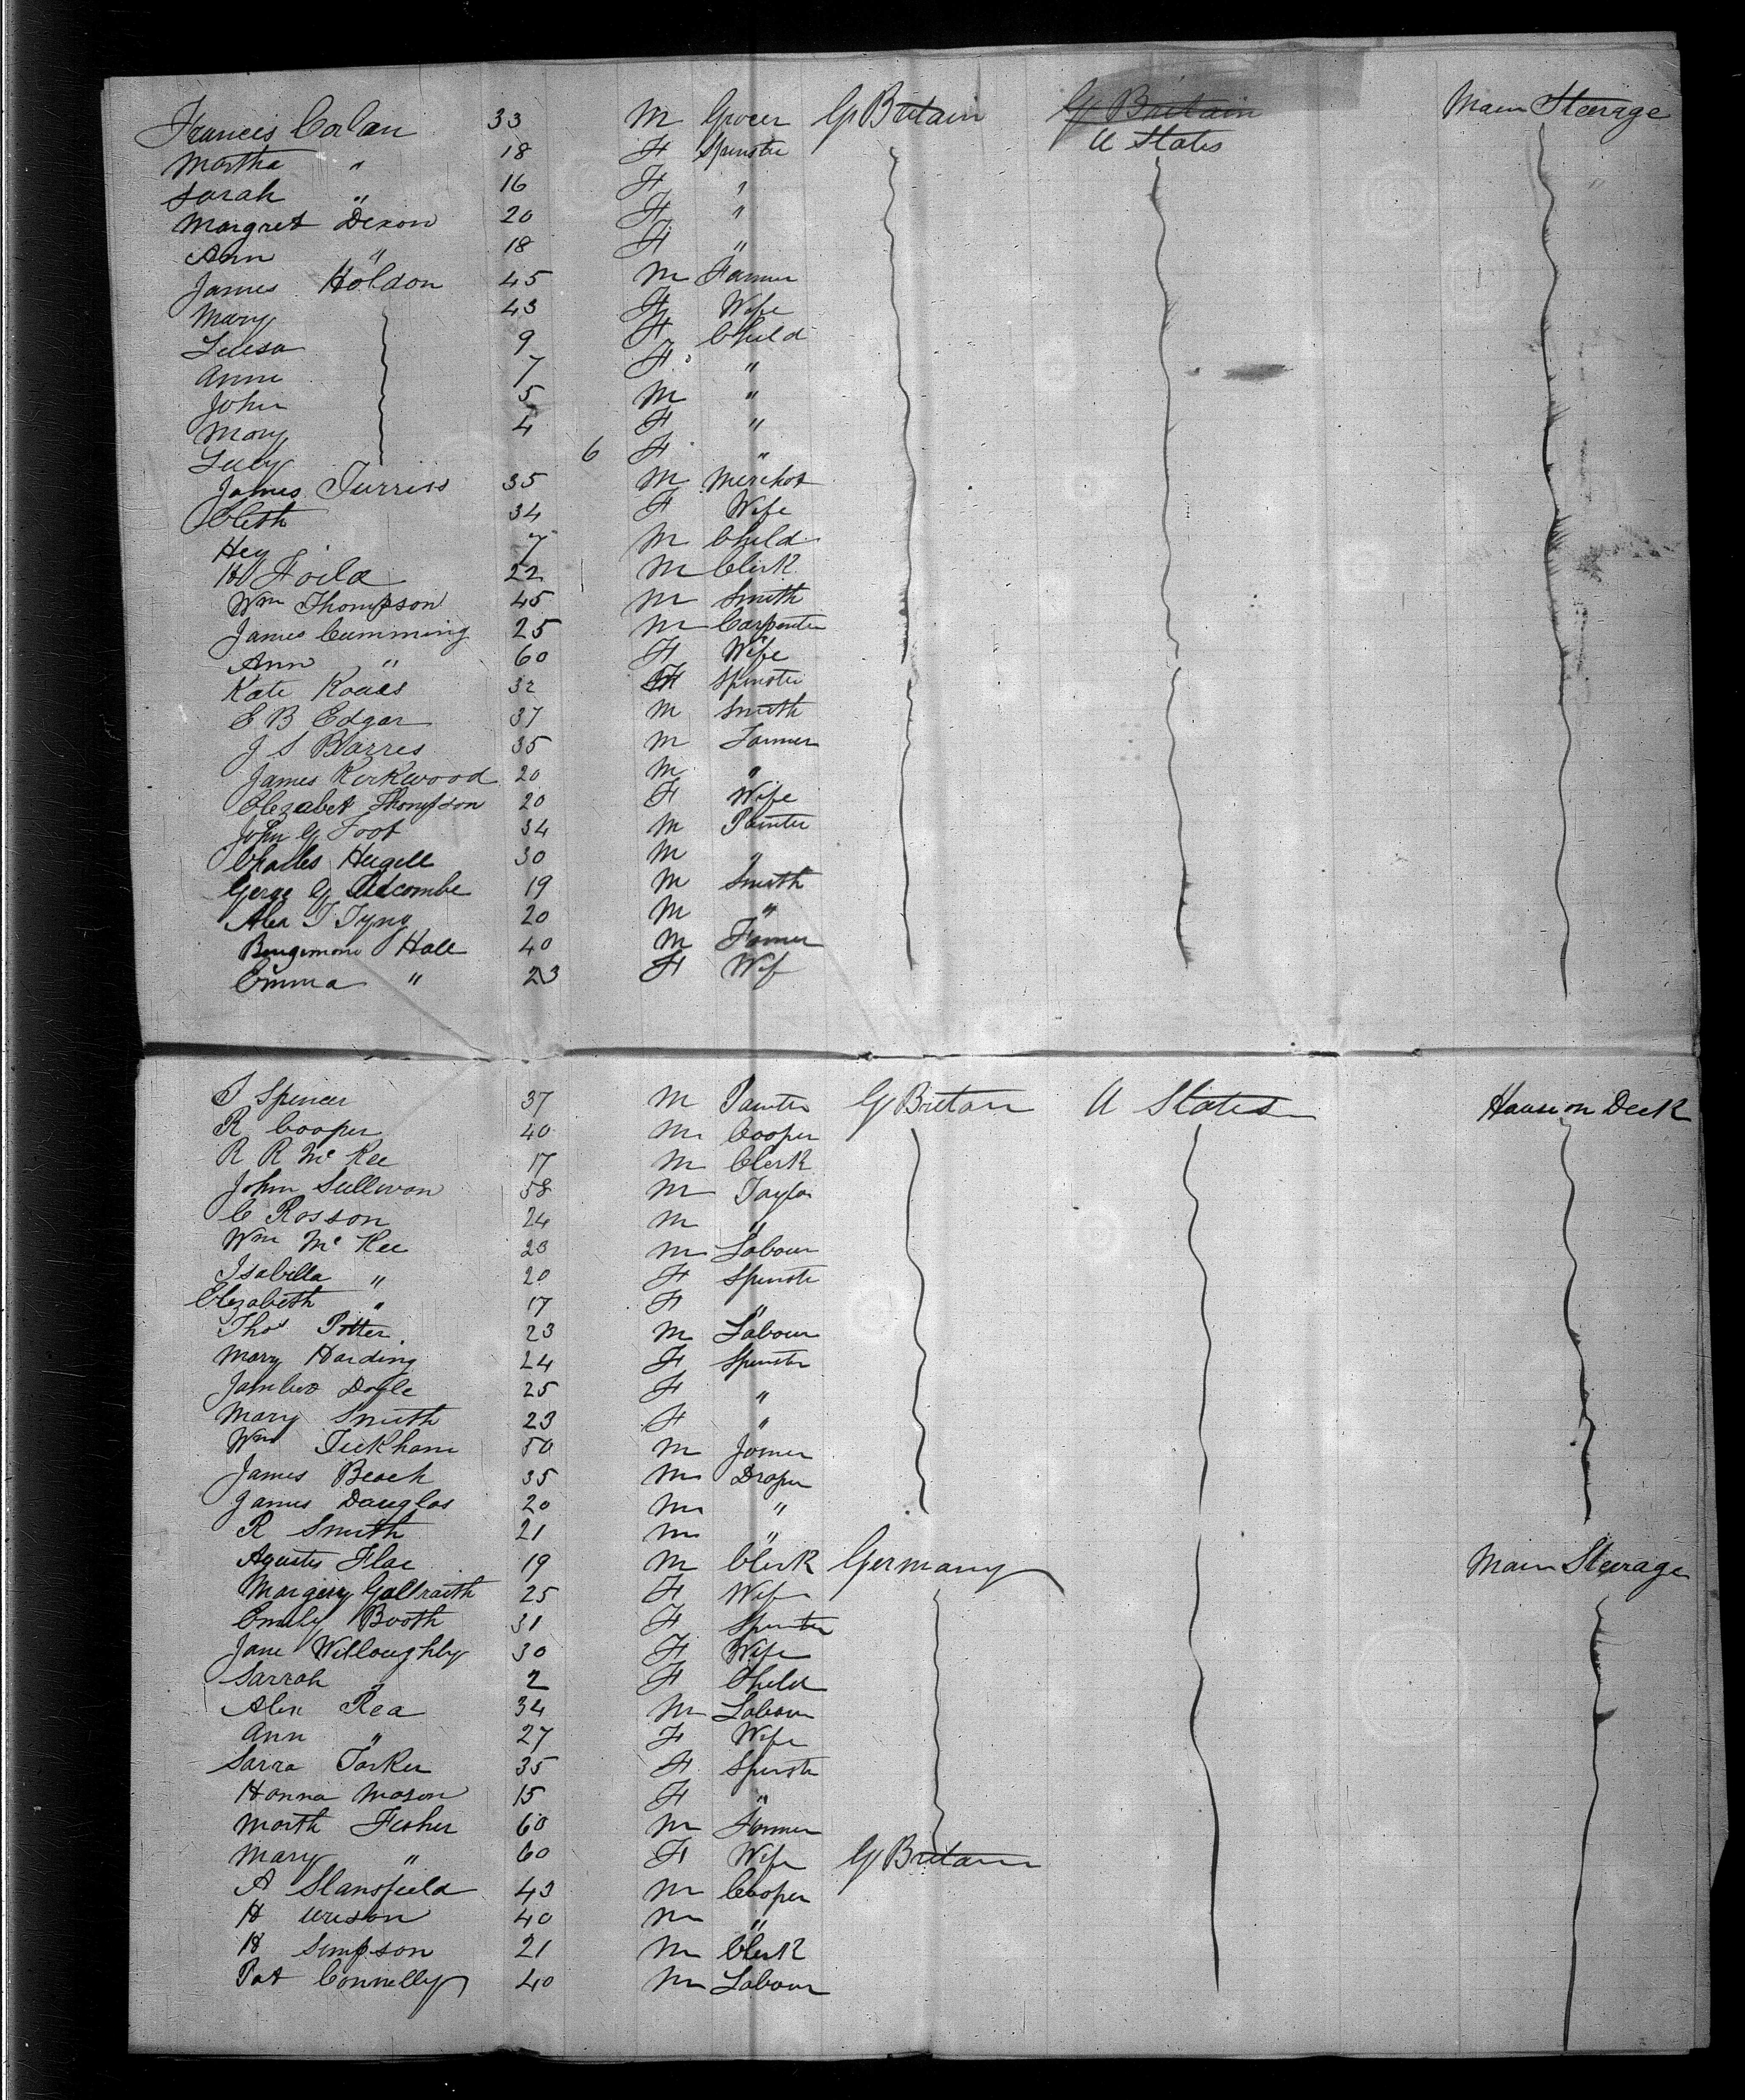 Francis Colan 33 M Grocer G Britain G Britain Main Steerage
Martha " 18 F Spinster U States
Sarah " 16 F "
Margret Dixon 20 F "
Ann " 18 F "
James Holdon 45 M Farmer
Mary 43 F Wife
9 F Child
Anne 7 F "
John 5 M "
Mary 4 F "
Lucy 6 F "
James 35 M Merchat
34 F Wife
Hey 7 M Child
22 M Clerk
Wm Thompson 45 M Smith
James Cumming 25 M Carpenter
Ann " 60 F Wife
Kate 32 F Spinster
E B Edgar 37 M Smith
J S Barres 35 M Farmer
James Kirkwood 20 M "
Elezabet Thompson 20 F Wife
John G Foot 34 M Painter
Charles Hugill 30 M "
Gerge G 19 M Smith
Alex T 20 M "
Hall 40 M Farmer
Emma " 23 F Wif
J Spencer 37 M Painter G Britan U States House on Deck
R Cooper 40 M Cooper
R R Mc Kee 17 M Clerk
John Sullivan 58 M Taylor
C Rosson 24 M "
Wm Mc Kee 23 M Labour
Isabella " 20 F Spinste
Elezabeth " 17 F "
Thos Potter 23 M Labour
Mary Harding 24 F Spinster
Doyle 25 F "
Mary Smith 23 F "
Wm Tuckham 50 M Joiner
James Beach 35 M Draper
James Douglas 20 M "
R Smith 21 M "
Agustus Flac 19 M Clerk Germany Main Steerage
Margery Galbraith 25 F Wife
Emily Booth 31 F Spinster
Jane Willoughby 30 F Wife
Sarrah " 2 F Child
Alex Rea 34 M Labour
Ann " 27 F Wife
Sarra 35 F Spinste
Hanna Mason 15 F "
Marth Fisher 60 M Farmer
Mary " 60 F Wife G Britain
A Stansfield 43 M Cooper
H 40 M "
H Simpson 21 M Clerk
Pat Connelly 40 M Labour